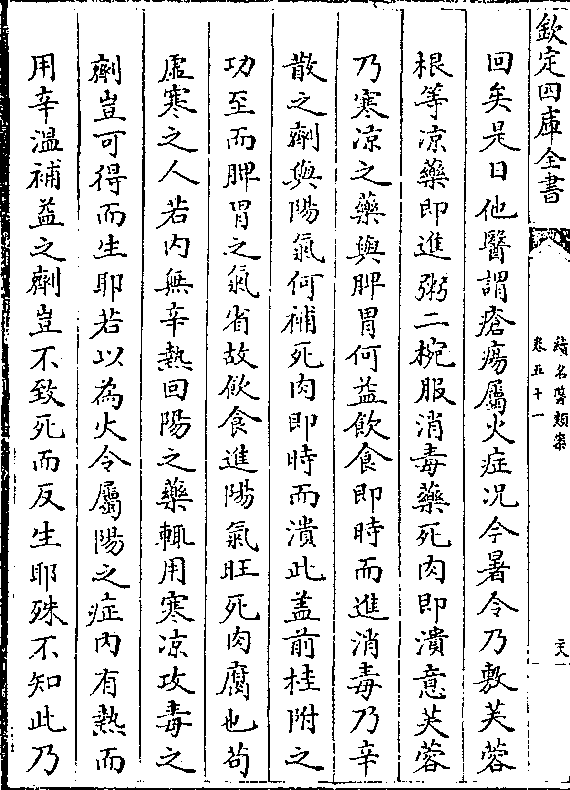 欽定四庫全書
續名醫類案
卷五十一
回矣是日他醫謂瘡瘍屬火症况今暑令乃敷芙蓉
根等凉藥即進粥二椀服消毒藥死肉即潰意芙蓉
乃寒凉之藥與脾胃何益飲食即時而進消毒乃辛
散之劑與陽氣何補死肉即時而潰此盖前桂附之
功至而脾胃之氣省故飲食進陽氣旺死肉腐也苟
虛寒之人若内無辛熱回陽之藥輒用寒凉攻毒之
劑豈可得而生耶若以為火令屬陽之症内有熱而
用辛溫補益之劑豈不致死而反生耶殊不知此乃